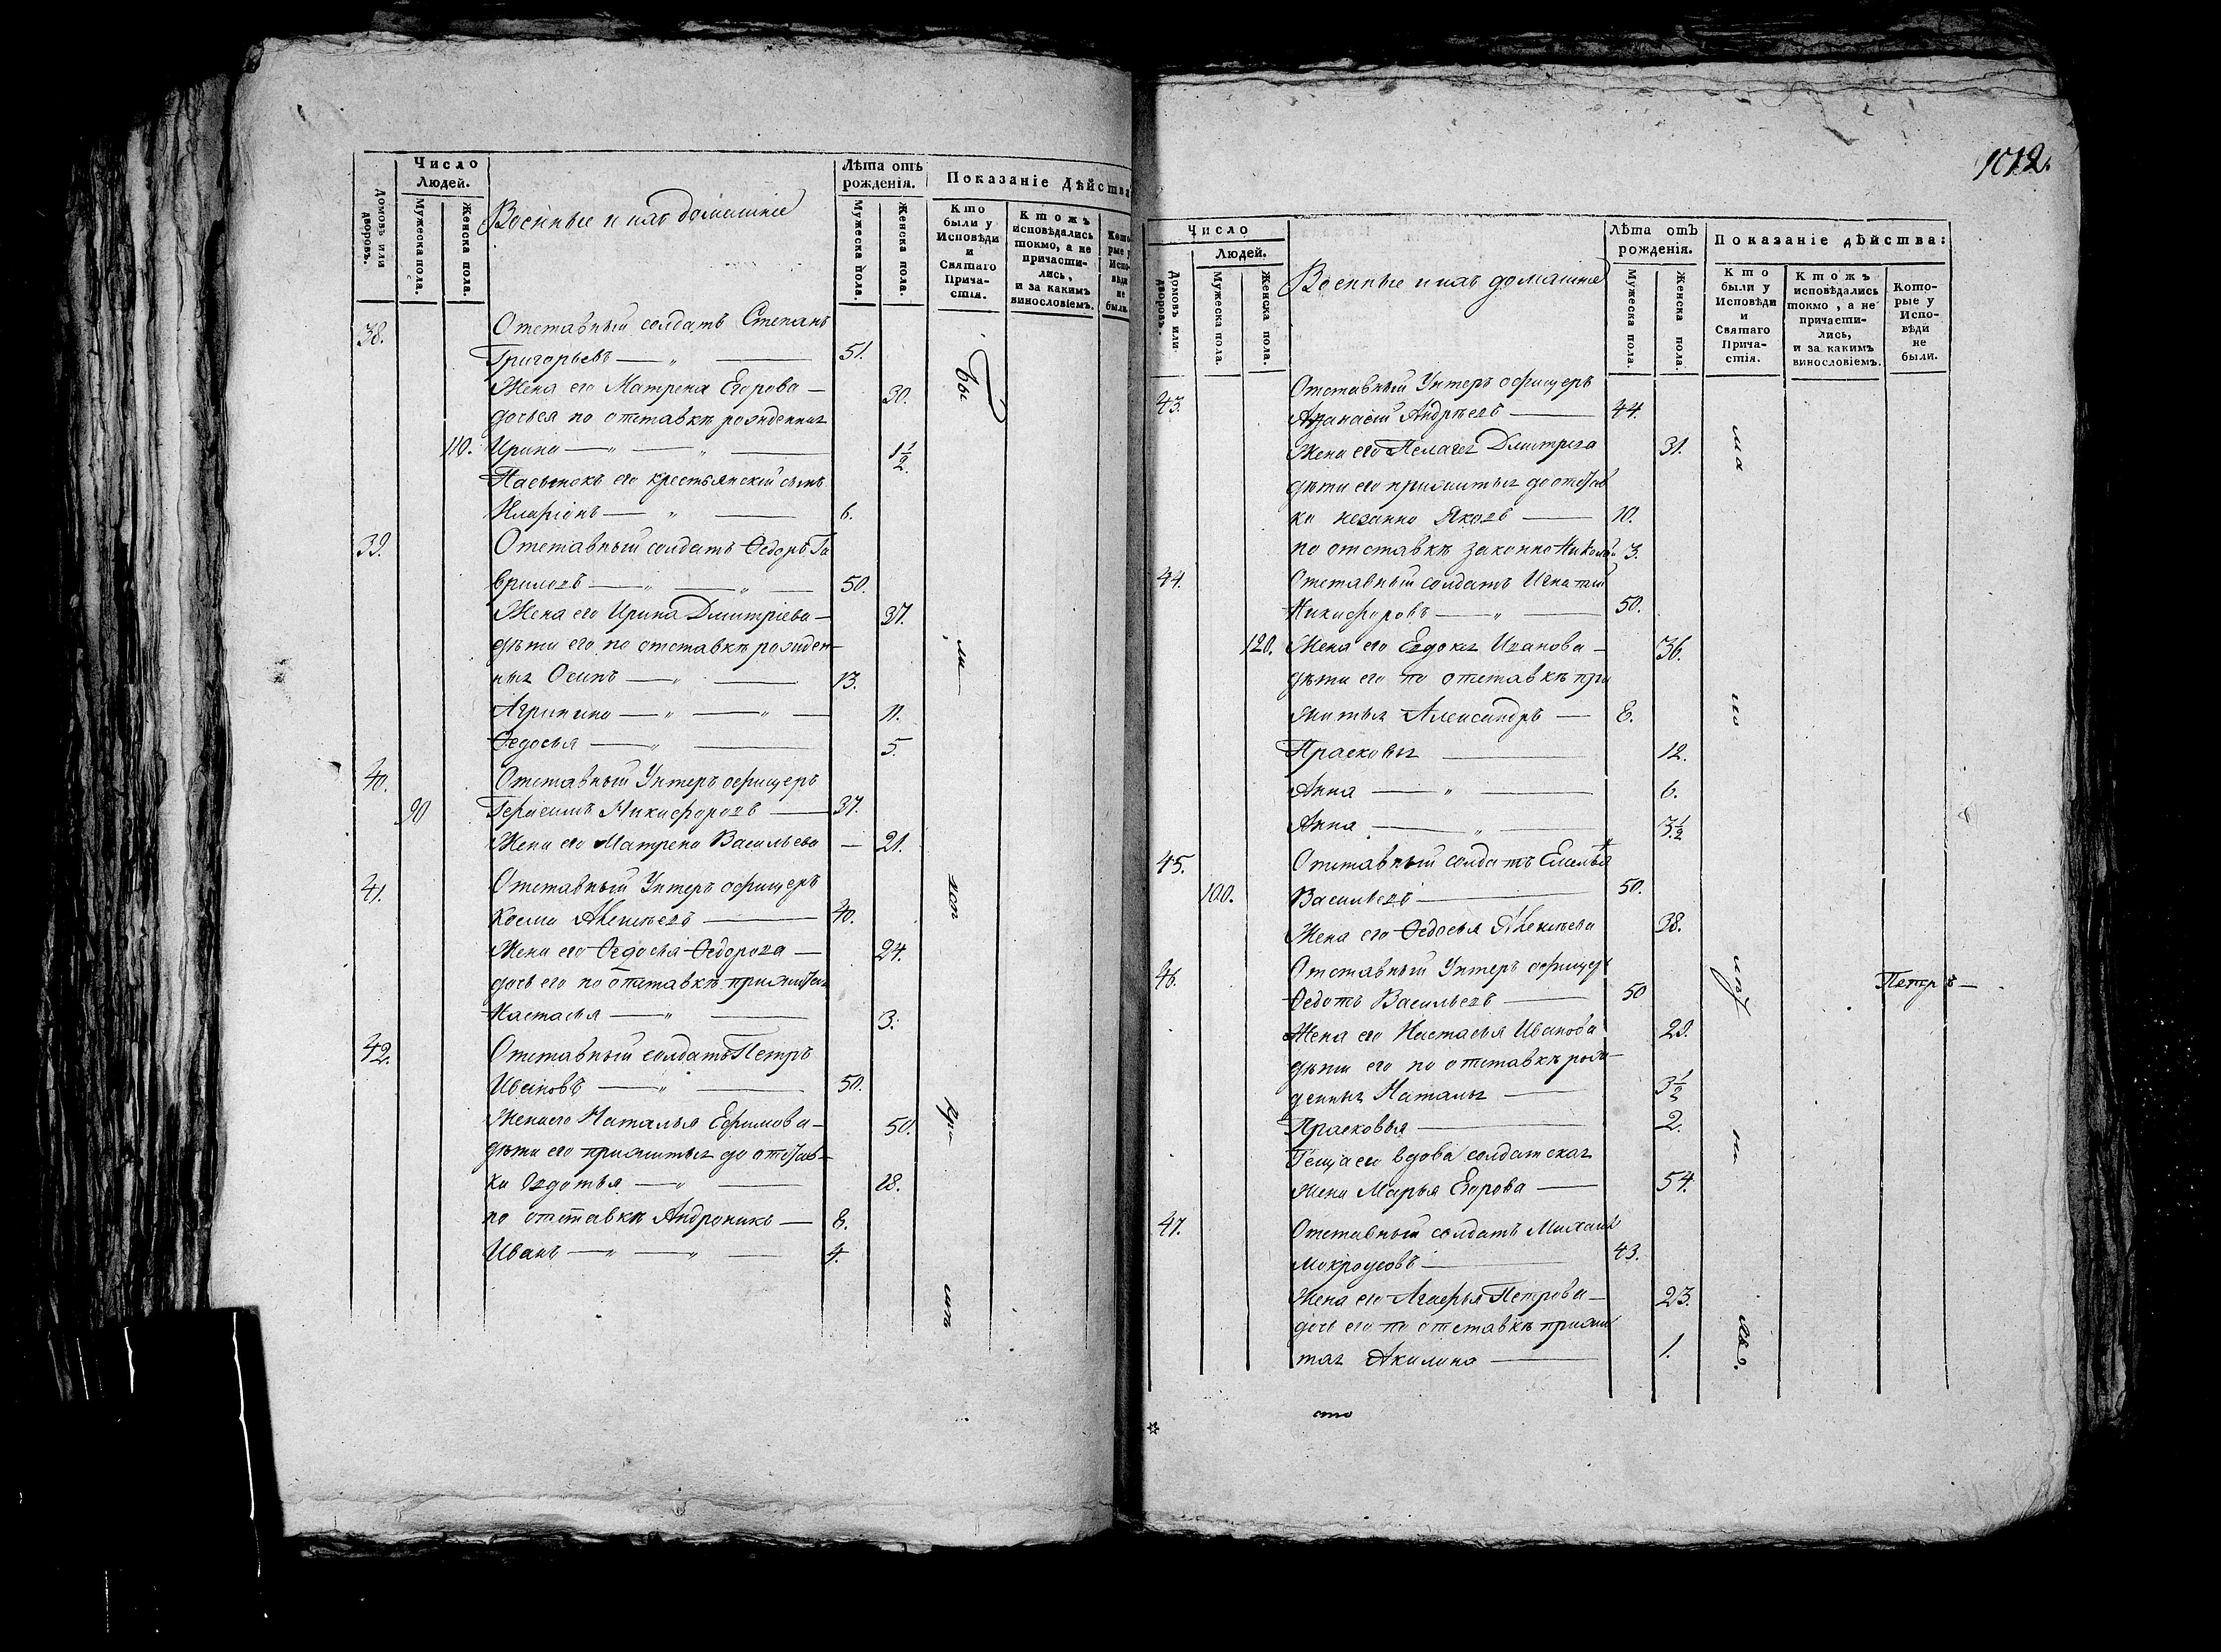 Число
Людей.
Домовъ или дворовъ.
Мужеска пола.
Женска пола.
Военные и ихъ домашніе
Лѣта отъ
рожденія.
Мужеска пола.
Женска пола.
Показаніе дѣйства
Кто были у Исповѣди и Святаго Причастія.
Ктожъ исповѣдались токмо, а не причастились, и за какимъ винословіемъ.
Которые у Исповѣди не были.
38. Отставный солдатъ Степанъ
Григорьевъ — „ — 51.
Жена его Матрена Егорова — 30.
дочь ея по отставкѣ рожденная
110. Ирина — „ — „ — 1½.
Пасынокъ его крестьянскій сынъ
Иларіонъ — „ — 6.
39. Отставный солдатъ Ѳедоръ Га
вриловъ — „ — „ — 50.
Жена его Ирина Дмитріева — 37.
дѣти его по отставкѣ рожден-
ныя Осипъ — „ — 13.
Агрипина — „ — „ — 11.
Ѳедосья — „ — 5.
40. Отставный Унтеръ офицеръ
90 Герасимъ Никифоровъ — 37.
Жена его Матрена Васильева — 21.
41. Отставный Унтеръ офицеръ
Косма Алексѣевъ — 40.
Жена его Ѳедосья Ѳедорова — 24.
дочь его по отставкѣ прижитая
Настасья — „ — 3.
42. Отставный солдатъ Петръ
Ивановъ — „ — 50.
Жена его Наталья Ефимова — 50.
дѣти его прижитыя до отстав-
ки Евдотья — „ — 18.
по отставкѣ Андроникъ — 8.
Иванъ — „ — „ — 4.
бы
ли
исп
1012.
Число
Людей.
Домовъ или дворовъ.
Мужеска пола.
Женска пола.
Военные и ихъ домашніе
Лѣта отъ
рожденія.
Мужеска пола.
Женска пола.
Показаніе дѣйства:
Кто были у Исповѣди и Святаго Причастія.
Ктожъ исповѣдались токмо, а не причастились, и за какимъ винословіемъ.
Которые у Исповѣди не были.
43. Отставный Унтеръ офицеръ
Афанасій Андрѣевъ — 44.
Жена его Пелагея Дмитріева 31.
дѣти его прижитыя до отстав
ки Яковъ — 10.
по отставкѣ законно Николай 3.
44. Отставный солдатъ Игнатій
Никифоровъ — „ — 50.
120. Жена его Евдокія Иванова — 36.
дѣти его по отставкѣ при
житыя Александръ — 8.
Прасковья — 12.
Анна — „ — 6.
Анна — „ — 3½
45. Отставный солдатъ Емельянъ
100. Васильевъ — 50.
Жена его Ѳедосья Алексѣева 38.
46. Отставный Унтеръ офицеръ
Ѳедотъ Васильевъ — 50
Жена его Настасья Иванова 29.
дѣти его по отставкѣ рож-
денныя Наталья — 3½
Прасковья — 2.
Теща его вдова солдатская
жена Марья Егорова — 54.
47. Отставный солдатъ Михаилъ
Мокроусовъ — 43.
Жена его Агафья Петрова — 23.
дочь его по отставкѣ прижи
тая Акилина — 1.
Петръ —
ма